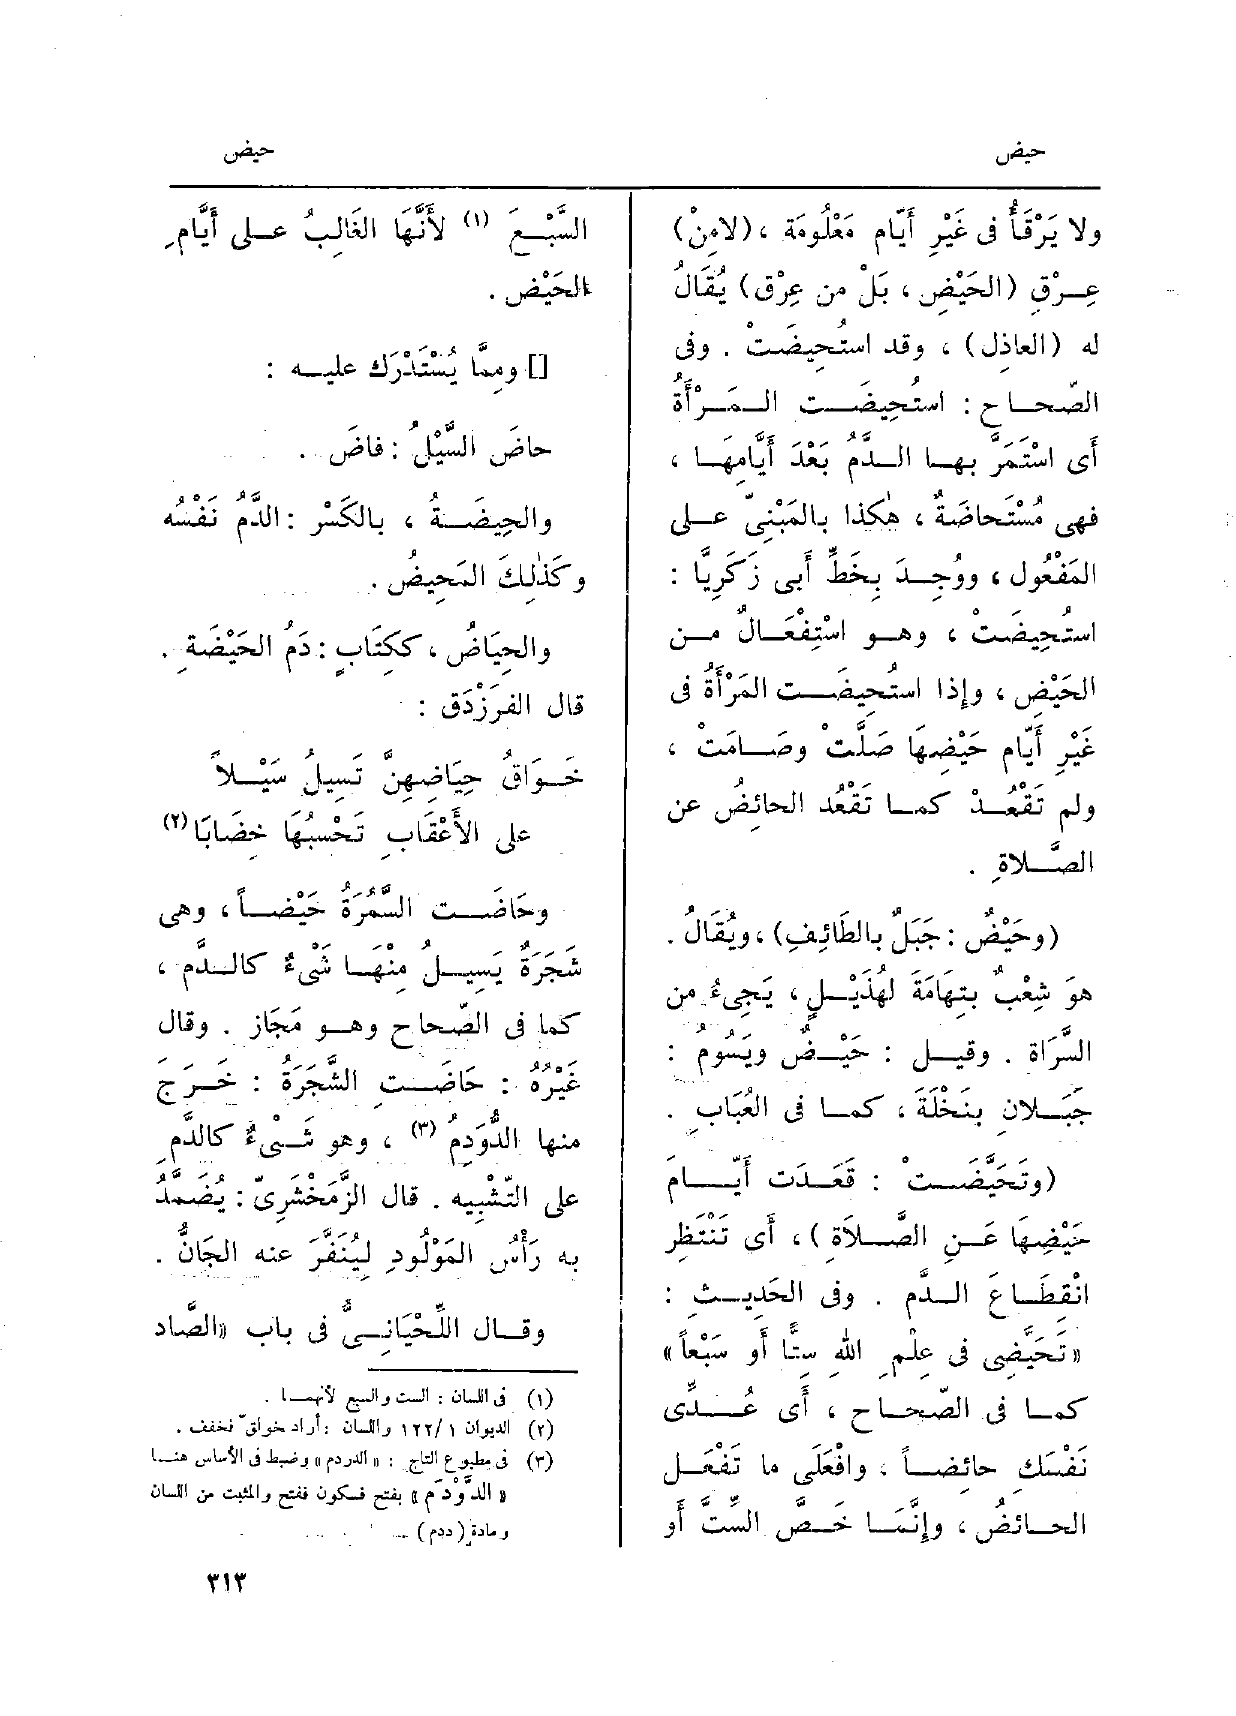 حيض
حيض
ولا يَرْقَأُ فى غَيْرِ أَيّامٍ مَعْلُومَة ، (لامِنْ)
عِرْقِ (الحَيْضِ ، بَلْ من عِرْقٍ) يُقَالُ
له (العاذِل) ، وقد استُحِيضَتْ . وفى
الصّحاح : استُحِيضَت المَرْأَةُ
أَى اسْتَمَرَّ بها الدَّمُ بَعْدَ أَيَّامِهَا ،
فهى مُسْتَحاضَةٌ ، هكذا بالمَبْنِىّ على
المَفْعُول ، ووُجِدَ بِخَطِّ أَبى زَكَرِيَّا :
استُحِيضَتْ ، وهو اسْتِفْعَالٌ من
الحَيْضِ ، وإِذا استُحِيضَت المَرْأَةُ فى
غَيْرِ أَيّامِ حَيْضِهَا صَلَّتْ وصَامَتْ ،
ولم تَقْعُدْ كما تَقْعُد الحائِض عن
الصَّلاةِ .
(وحَيْضٌ : جَبَلٌ بالطَّائِفِ) ، ويُقَالُ .
هوَ شِعْبٌ بتِهَامَةَ لهُذَيْلٍ ، يَجِىءُ من
السَّرَاة . وقيل : حَيْضٌ ويَسُومُ :
جَبَلان بنَخْلَةَ ، كما فى العُبَابِ .
(وتَحَيَّضَتْ : قَعَدَت أَيّامَ
حَيْضِهَا عَنِ الصَّلاَةِ ) ، أَى تَنْتَظِر
انْقِطَاعَ الدَّمِ . وفى الحَدِيث :
«تَحَيَّضِى فى عِلْمِ اللهِ سِتًّا أَو سَبْعاً»
كما فى الصّحاح ، أَى عُدِّى
نَفْسَك حائِضاً ، وافْعَلِى ما تَفْعَل
الحائضُ ، وإِنَّمَا خَصَّ السِّتَّ أَو
السَّبْعَ (١) لأَنَّهَا الغَالِبُ على أَيَّامِ
الحَيْضِ .
[] ومِمَّا يُسْتَدْرَك عليه :
حاضَ السَّيْلُ : فاضَ .
والحِيضَةُ ، بالكَسْر : الدَّمُ نَفْسُه
وكَذٰلِكَ المَحِيضُ .
والحِيَاضُ ، ككِتَابٍ : دَمُ الحَيْضَةِ .
قال الفَرَزْدَق :
خَوَاقُ حِيَاضِهِنَّ تَسِيلُ سَيْلاً
على الأَعْقَابِ تَحْسِبُهَا خِضَابَا (٢)
وحَاضَت السَّمُرَةُ حَيْضاً ، وهى
شَجَرَةٌ يَسِيلُ مِنْهَا شَىْءٌ كالدَّمِ ،
كما فى الصّحاح وهو مَجَاز . وقال
غَيْرُهُ : حَاضَتِ الشَّجَرَةُ : خَرَجَ
منها الدُّوَدِمُ (٣) ، وهو شَىْءٌ كالدَّمِ
على التّشْبِيه . قال الزَّمَخْشَرِىّ : يُضَمَّدُ
به رَأْسُ المَوْلُودِ لِيُنَفَّرَ عنه الجَانُّ .
وقال اللِّحْيَانِىُّ فى باب «الصَّاد
(١) فى اللسان : الست والسبع لأنهما .
(٢) الديوان ١ /١٢٢ واللسان : أراد خواقّ نخفف .
(٣) فى مطبوع التاج : « الدردم » وضبط فى الأساس هنا
« الدَّوْدَم » بفتح فسكون ففتح والمثبت من اللسان
ومادة (ددم)
٣١٣